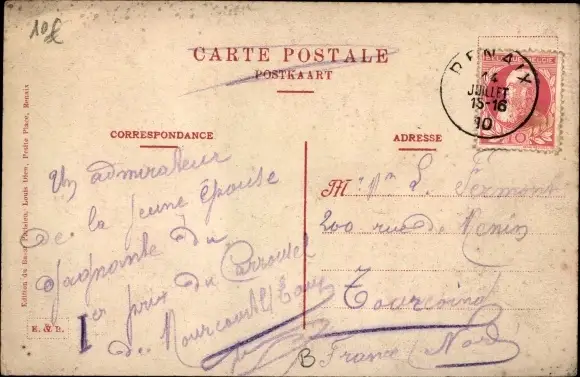 10£
CARTE POSTALE
POSTKAART
RENAIX
14
JUILLET
15-16
10
CORRESPONDANCE
ADRESSE
Un admirateur
de la jeune épouse
gagnante du
1er prix du Carrousel
de
M. L.
200 rue de Menin
Tourcoing
France (Nord)
B
Edition du Bazar Parisien, Louis Petite Place, Renaix
E. & B.
I